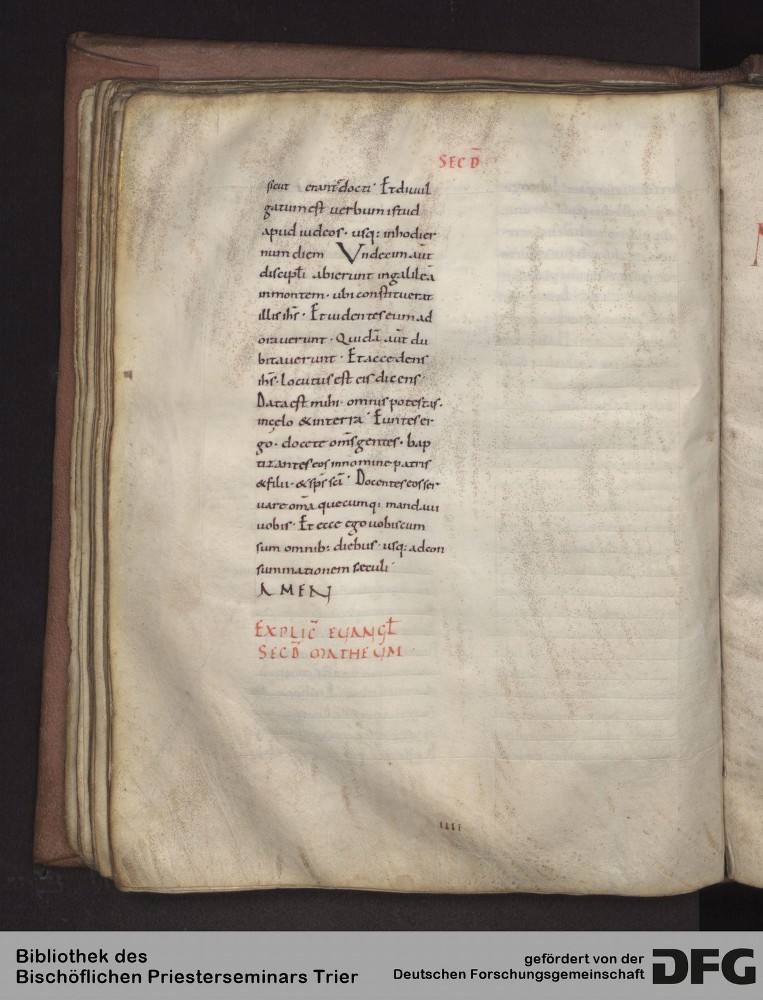 SEC̄D
sicut erant docti · Et diuul
gatum est uerbum istud
apud iudeos · usq: inhodier
num diem Vndecim aūt
discipłi abierunt ingalileā
inmontem · ubi constituerat
illis ihs̄ · Et uidentes eum ad
orauerunt · Quidā aūt du
bitauerunt · Et accedens
ihs̄ · Locutus est eis dicens ·
Data est mihi · omnis potestas ·
incęlo & interra · Euntes er
go · docete om̄s gentes · bap
tizantes eos innomine patris
& filii · & sp̄s sc̄i · Docentes eos ser
uare om̄a quecumq: mandaui
uobis · Et ecce ego uobiscum
sum omnib: diebus · usq: ad con
summationem sęculi ·
AMEN
EXPLIC̄ EUANGŁ
SEC̄D MATHEUM ·
IIII
Bibliothek des
Bischöflichen Priesterseminars Trier
gefördert von der
Deutschen Forschungsgemeinschaft
DFG